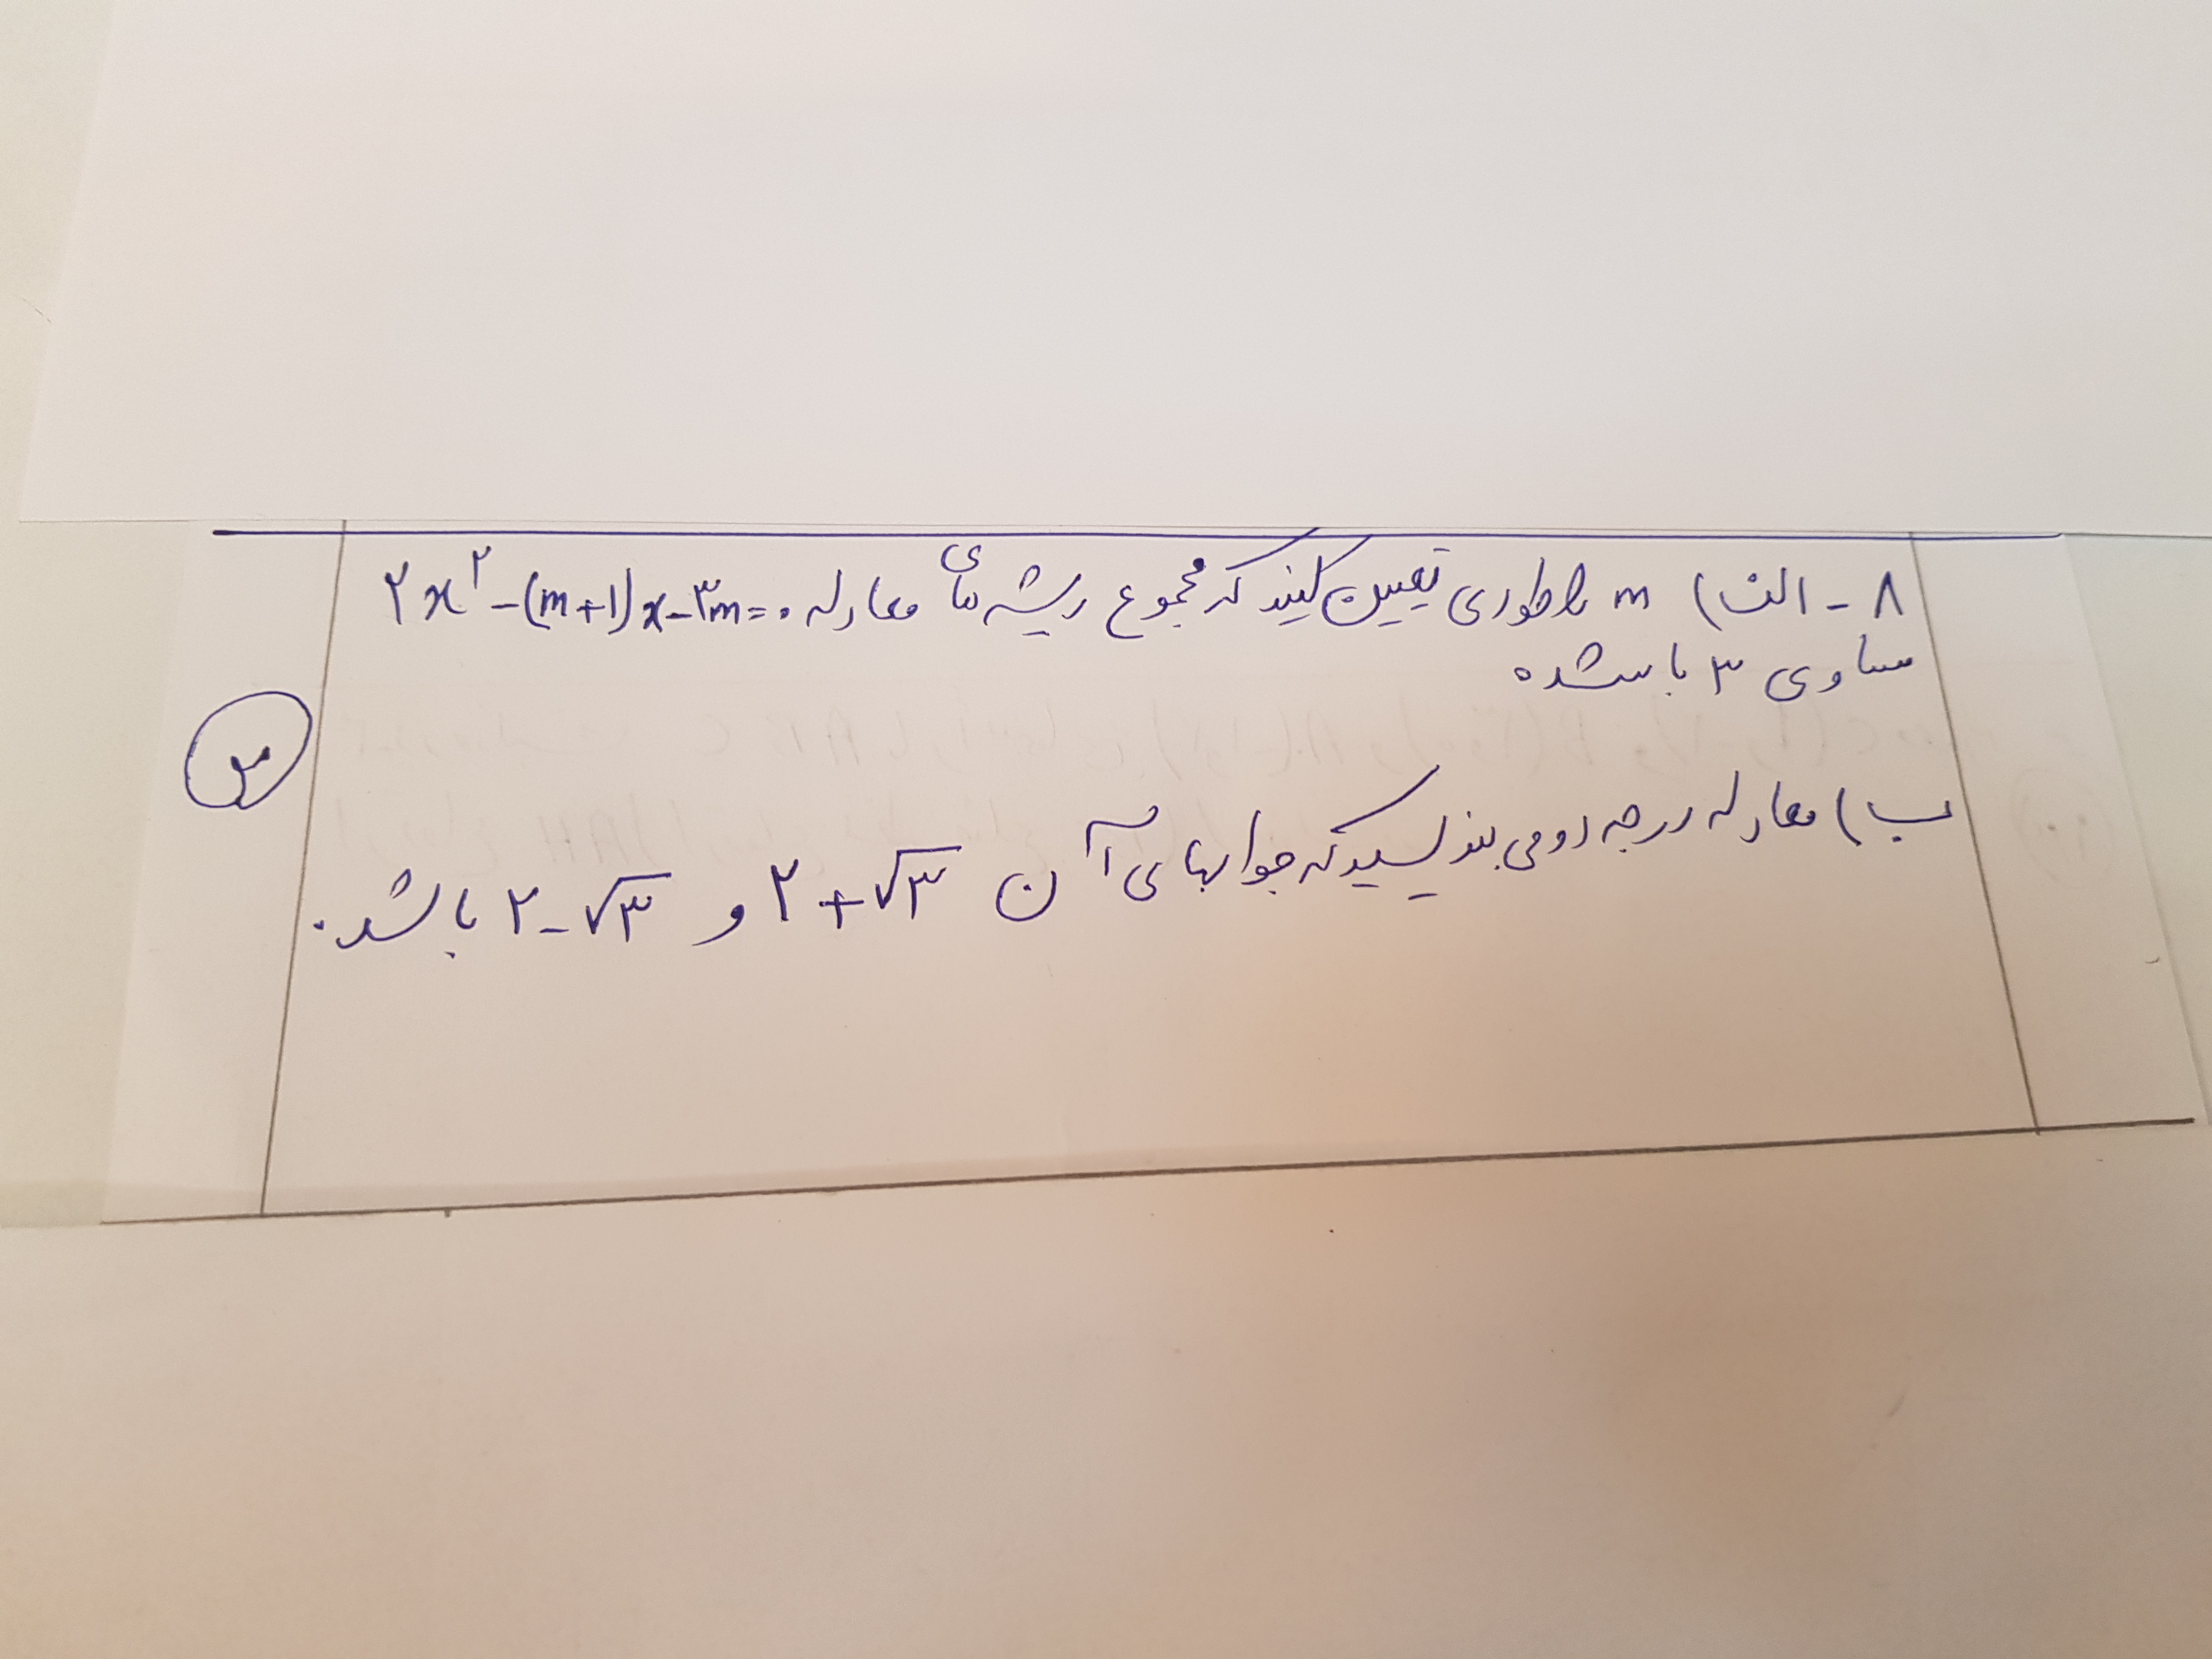 ۸ - الف) m را طوری تعیین کنید که مجموع ریشه های معادله ۲x^۲ - (m+1)x - ۳m = ۰
مساوی ۳ باشده
ب) معادله درجه دومی بنویسید که جوابهای آن ۲+√۳ و ۲-√۳ باشد.
۳